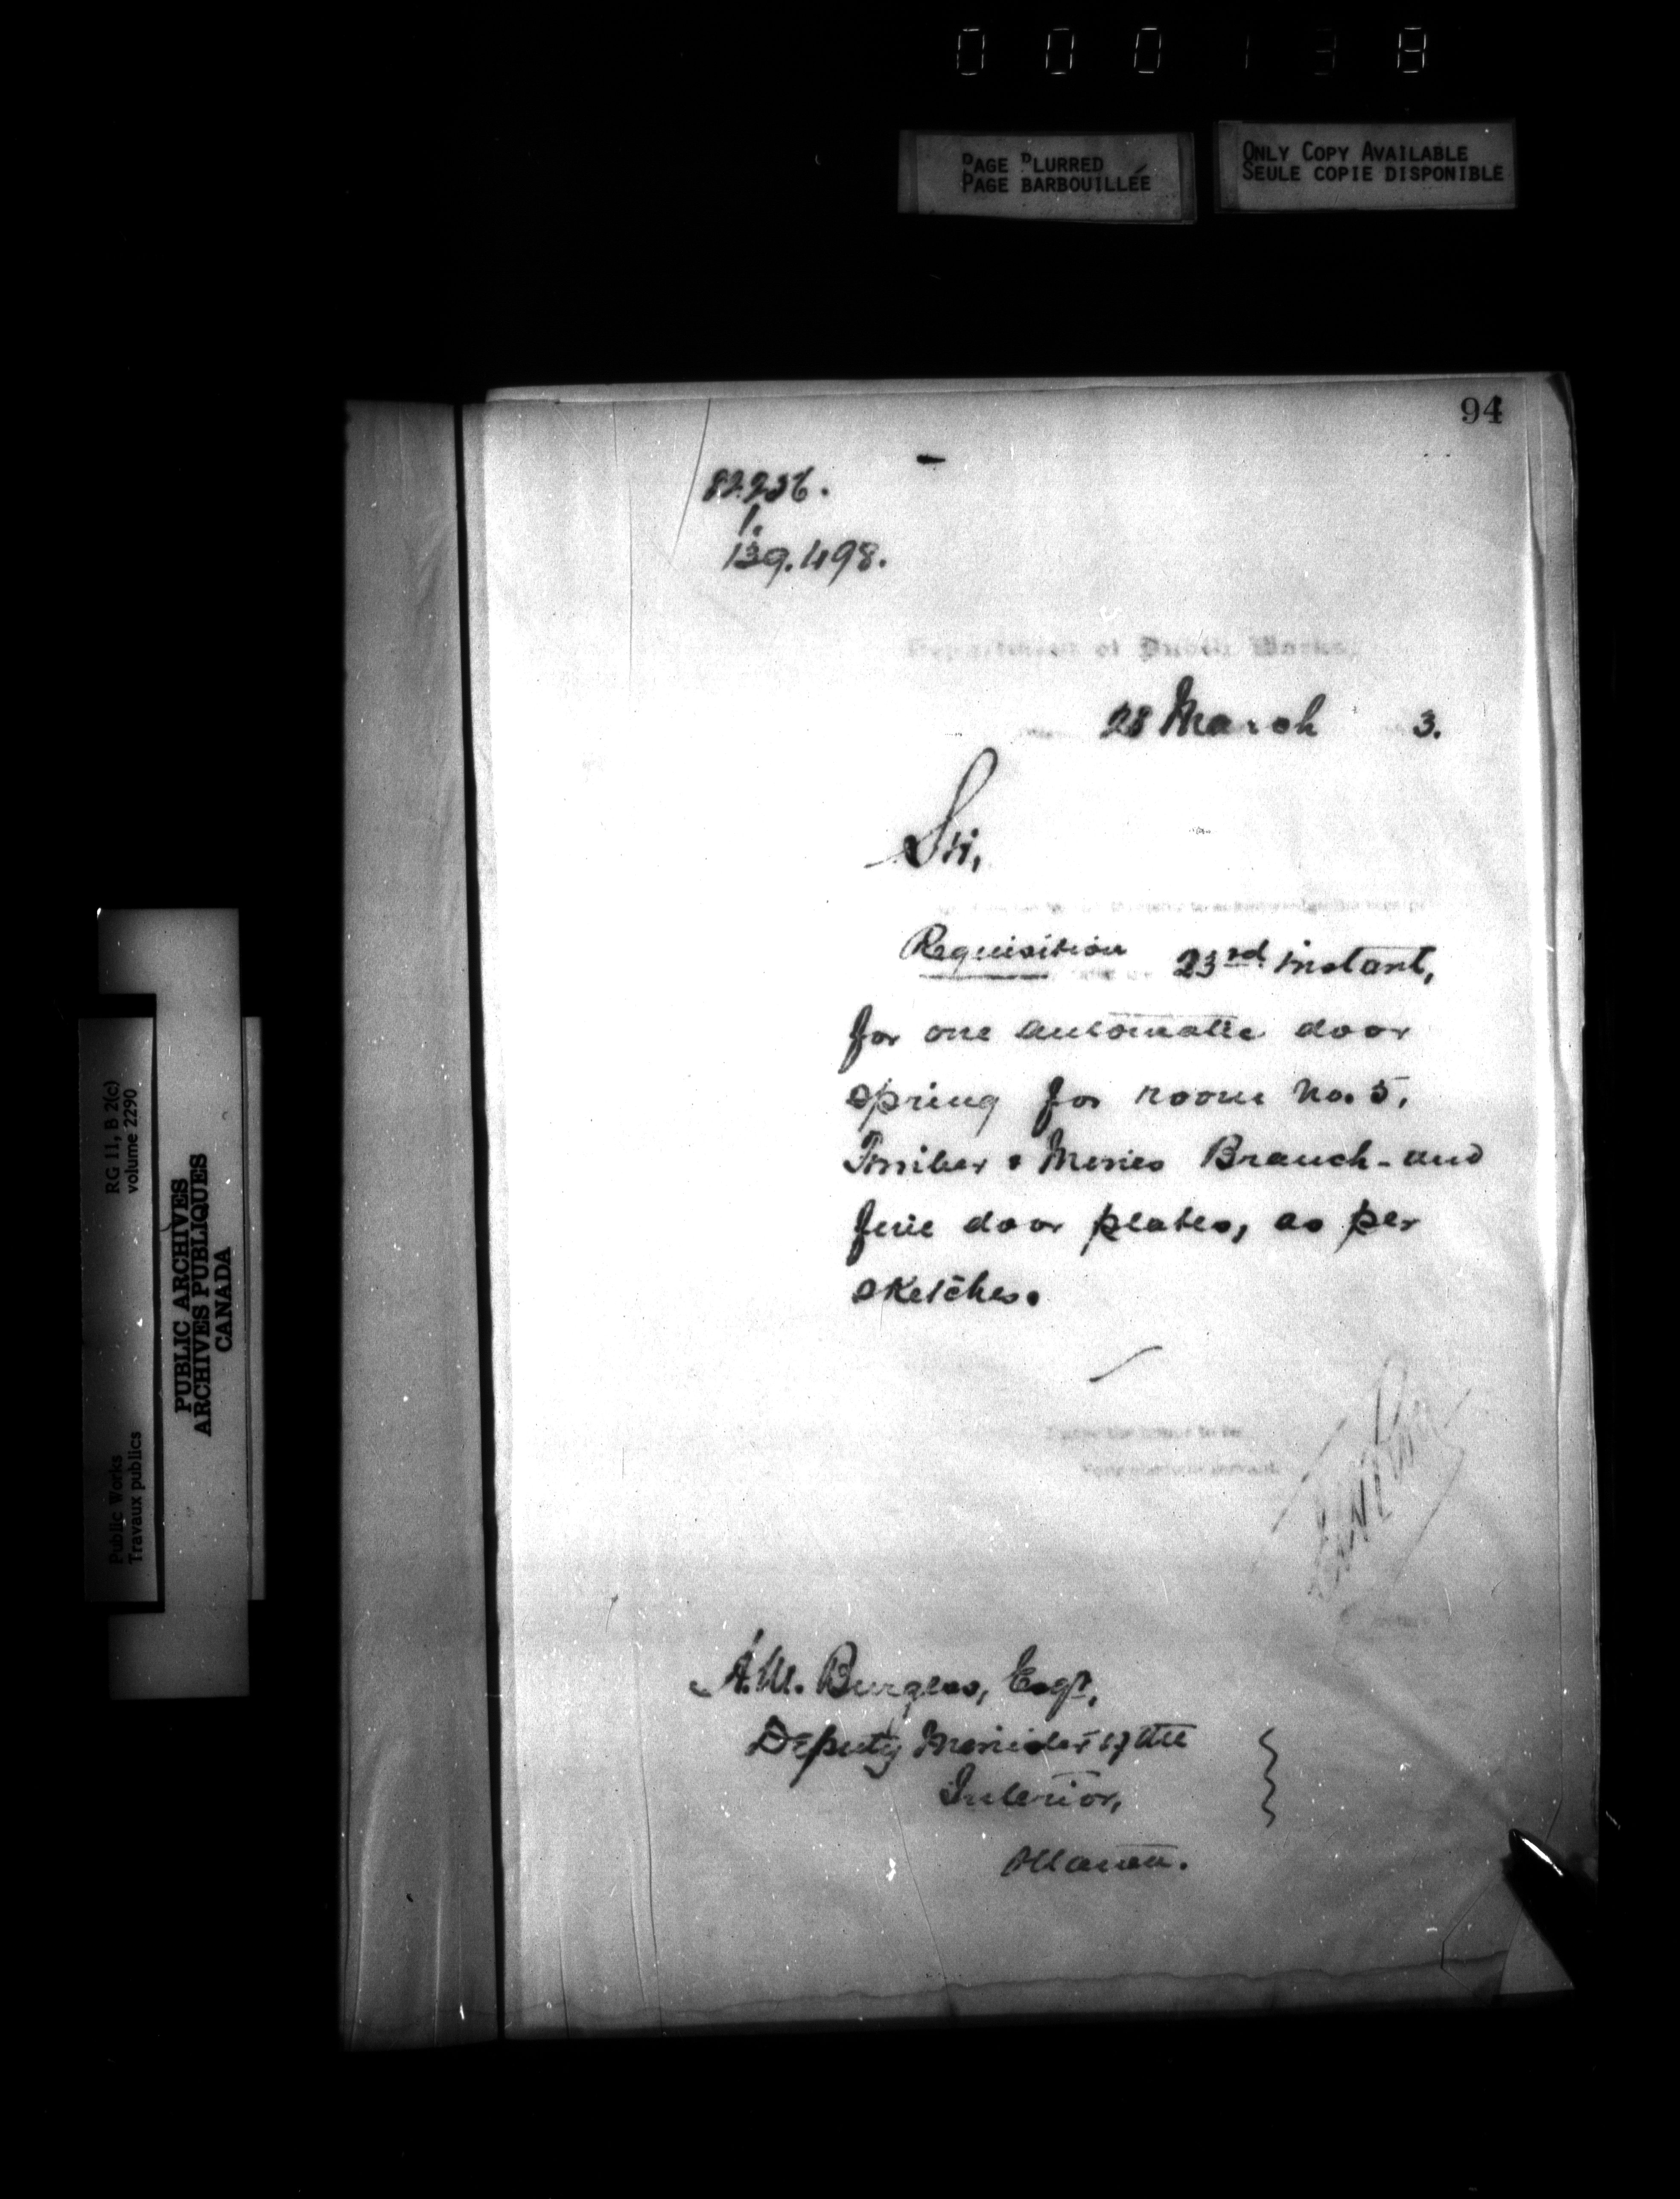 000138
PAGE BLURRED
PAGE BARBOUILLÉE
ONLY COPY AVAILABLE
SEULE COPIE DISPONIBLE
94
82236.
1.
139.498.
Department of Public Works,
28 March 3.
Sir,
Requisition 23rd instant,
for one automatic door
spring for room No. 5,
Timber & Mines Branch - and
five door plates, as per
sketches.
I have the honor to be
Your obedient servant.
A. M. Burgess, Esqr.,
Deputy Minister of the
Interior,
Ottawa.
Public Works
Travaux publics
RG 11, B 2(c)
volume 2290
PUBLIC ARCHIVES
ARCHIVES PUBLIQUES
CANADA